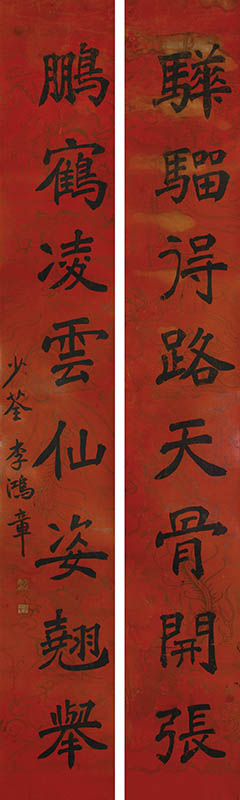 驊騮得路天骨開張
鵬寉凌雲仙姿翹舉
少荃李鴻章